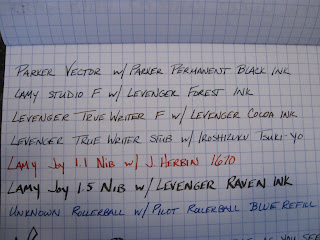 Parker Vector w/ Parker Permanent Black Ink
Lamy Studio F w/ Levenger Forest Ink
Levenger True Writer F w/ Levenger Cocoa Ink
Levenger True Writer Stub w/ Iroshizuku Tsuki-yo
Lamy Joy 1.1 Nib w/ J. Herbin 1670
Lamy Joy 1.5 Nib w/ Levenger Raven Ink
Unknown Rollerball w/ Pilot Rollerball Blue Refill
as you see